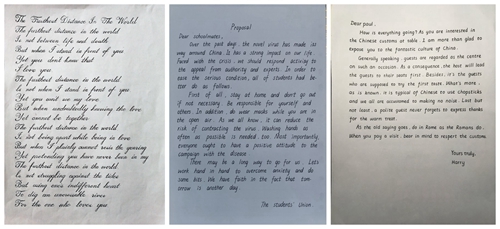 The Furthest Distance In The World
The furthest distance in the world
Is not between life and death
But when I stand in front of you
Yet you don't know that
I love you
The furthest distance in the world
Is not when I stand in front of you
Yet you can't see my love
But when undoubtedly knowing the love
Yet cannot be together
The furthest distance in the world
Is not being apart while being in love
But when I plainly cannot resist the yearning
Yet pretending you have never been in my
The furthest distance in the world
Is not struggling against the tides
But using one's indifferent heart
To dig an uncrossable river
For the one who loves you
Proposal
Dear schoolmates,
Over the past days, the novel virus has made its
way around China. It has a strong impact on our life.
Faced with the crisis, we should respond actively to
the appeal from authority and experts. In order to
ease the serious condition, all of students had bet-
ter do as follows.
First of all, stay at home and don't go out
if not necessary. Be responsible for yourself and
others. In addition, do wear masks while you are in
the open air. As we all know, it can reduce the
risk of contracting the virus. Washing hands as
often as possible is needed, too. Most importantly,
everyone ought to have a positive attitude to the
campaign with the disease.
There may be a long way to go for us. Let's
work hand in hand to overcome anxiety and do
some bits. We have faith in the fact that tom-
orrow is another day.
The students' Union
Dear paul,
How is everything going? As you are interested in
the Chinese customs at table, I am more than glad to
expose you to the fantastic culture of China.
Generally speaking, guests are regarded as the centre
on such an occasion. As a consequence, the host will lead
the guests to their seats first. Besides, it's the guests
who are supposed to eat first. What's more,
as is known, it is typical of Chinese to use chopsticks
and we all are accustomed to making no noise. Last but
not least, a polite guest never forgets to express thanks
for the warm treat.
As the old saying goes, do in Rome as the Romans do.
When you pay a visit, bear in mind to respect the customs.
Yours truly,
Harry